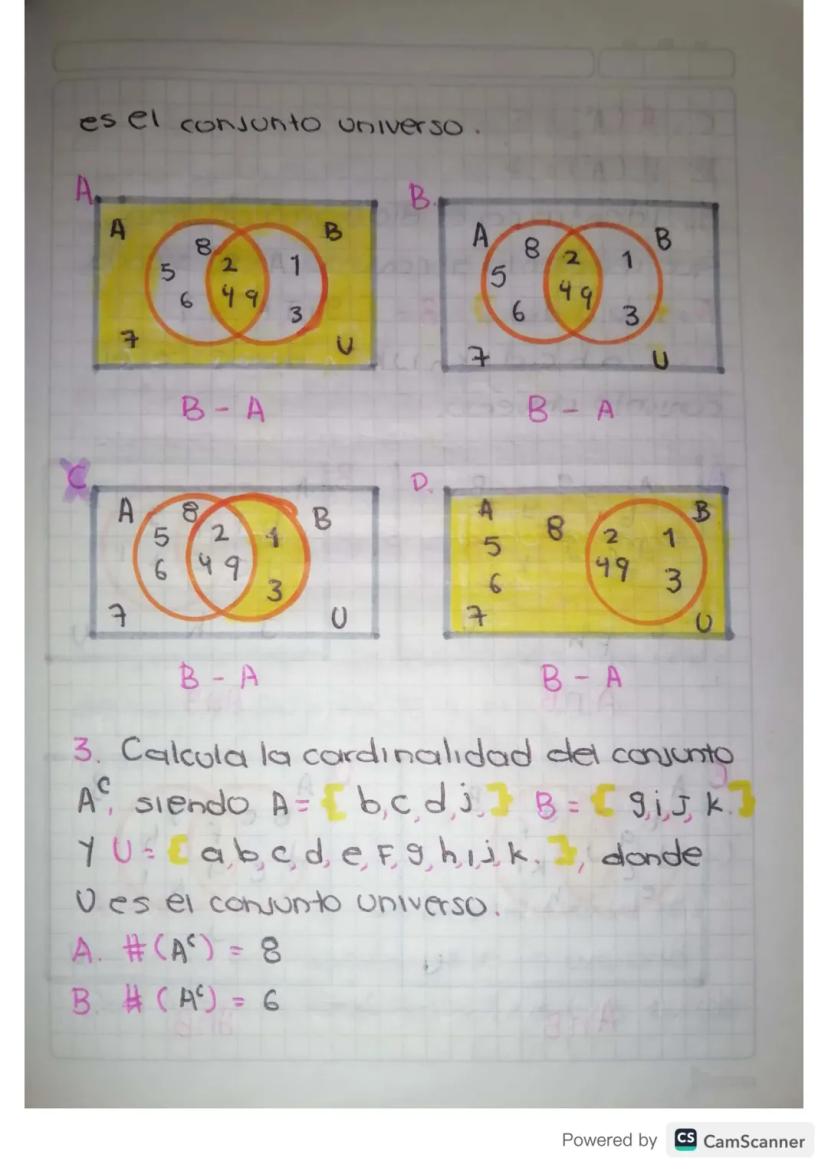 es el conjunto universo.
A.
A B
8
5 2 1
6 4 9 3
7 U
B - A
B.
A B
8 2 1
5 4 9
6 3
7 U
B - A
C
A 8 B
5 2 1
6 4 9 3
7 U
B - A
D.
A B
5 8 2 1
6 49 3
7 U
B - A
3. Calcula la cardinalidad del conjunto
Aᶜ, siendo A = { b, c, d, j, } B = { g, i, j, k. }
Y U = { a, b, c, d, e, F, g, h, i, j, k. }, donde
U es el conjunto universo.
A. #(Aᶜ) = 8
B. #(Aᶜ) = 6
Powered by CS CamScanner